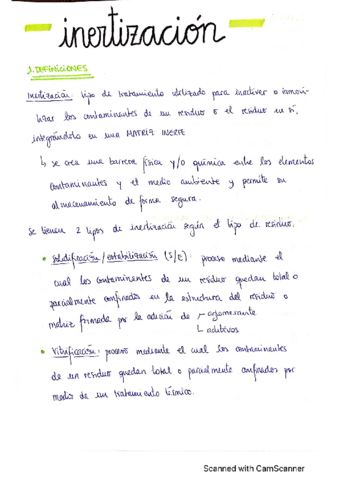 inertización
1. DEFINICIONES
Inertización: tipo de tratamiento utilizado para inactivar o inmovi-
lizar los contaminantes de un residuo o el residuo en sí,
integrándolo en una MATRIZ INERTE
↳ se crea una barrera física y/o química entre los elementos
contaminantes y el medio ambiente y permite su
almacenamiento de forma segura.
Se tienen 2 tipos de inertización según el tipo de residuo.
• Solidificación/estabilización (S/E): proceso mediante el
cual los contaminantes de un residuo quedan total o
parcialmente confinados en la estructura del residuo o
matriz formada por la adición de - aglomerante
- aditivos
• Vitrificación: proceso mediante el cual los contaminantes
de un residuo quedan total o parcialmente confinados por
medio de un tratamiento térmico.
Scanned with CamScanner